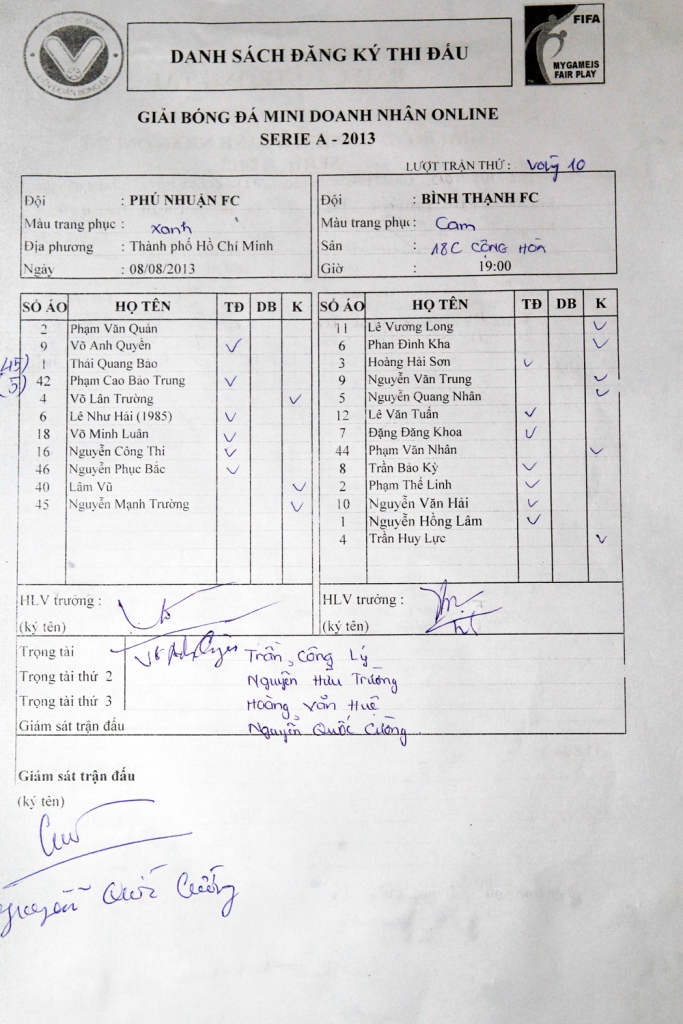 LIÊN ĐOÀN BÓNG ĐÁ
DANH SÁCH ĐĂNG KÝ THI ĐẤU
FIFA
MYGAMEIS
FAIR PLAY
GIẢI BÓNG ĐÁ MINI DOANH NHÂN ONLINE
SERIE A - 2013
LƯỢT TRẬN THỨ : Vòng 10
Đội : PHÚ NHUẬN FC
Màu trang phục : xanh
Địa phương : Thành phố Hồ Chí Minh
Ngày : 08/08/2013
Đội : BÌNH THẠNH FC
Màu trang phục : Cam
Sân : 18C CỘNG HÒA
Giờ 19:00
SỐ ÁO HỌ TÊN TĐ DB K
2 Phạm Văn Quản
9 Võ Anh Quyền ✓
(45) 1 Thái Quang Bảo
(5) 42 Phạm Cao Bảo Trung ✓
4 Võ Lân Trường ✓
6 Lê Như Hải (1985) ✓
18 Võ Minh Luân ✓
16 Nguyễn Công Thi ✓
46 Nguyễn Phục Bắc ✓
40 Lâm Vũ ✓
45 Nguyễn Mạnh Trường ✓
SỐ ÁO HỌ TÊN TĐ DB K
11 Lê Vương Long ✓
6 Phan Đình Kha ✓
3 Hoàng Hải Sơn ✓
9 Nguyễn Văn Trung ✓
5 Nguyễn Quang Nhân ✓
12 Lê Văn Tuấn ✓
7 Đặng Đăng Khoa ✓
44 Phạm Văn Nhân ✓
8 Trần Bảo Kỳ ✓
2 Phạm Thế Linh ✓
10 Nguyễn Văn Hải ✓
1 Nguyễn Hồng Lâm ✓
4 Trần Huy Lực ✓
HLV trưởng :
(ký tên)
Võ Anh Quyền
HLV trưởng :
(ký tên)
Trọng tài Trần Công Lý
Trọng tài thứ 2 Nguyễn Hữu Trường
Trọng tài thứ 3 Hoàng Văn Huệ
Giám sát trận đấu Nguyễn Quốc Cường
Giám sát trận đấu
(ký tên)
Nguyễn Quốc Cường